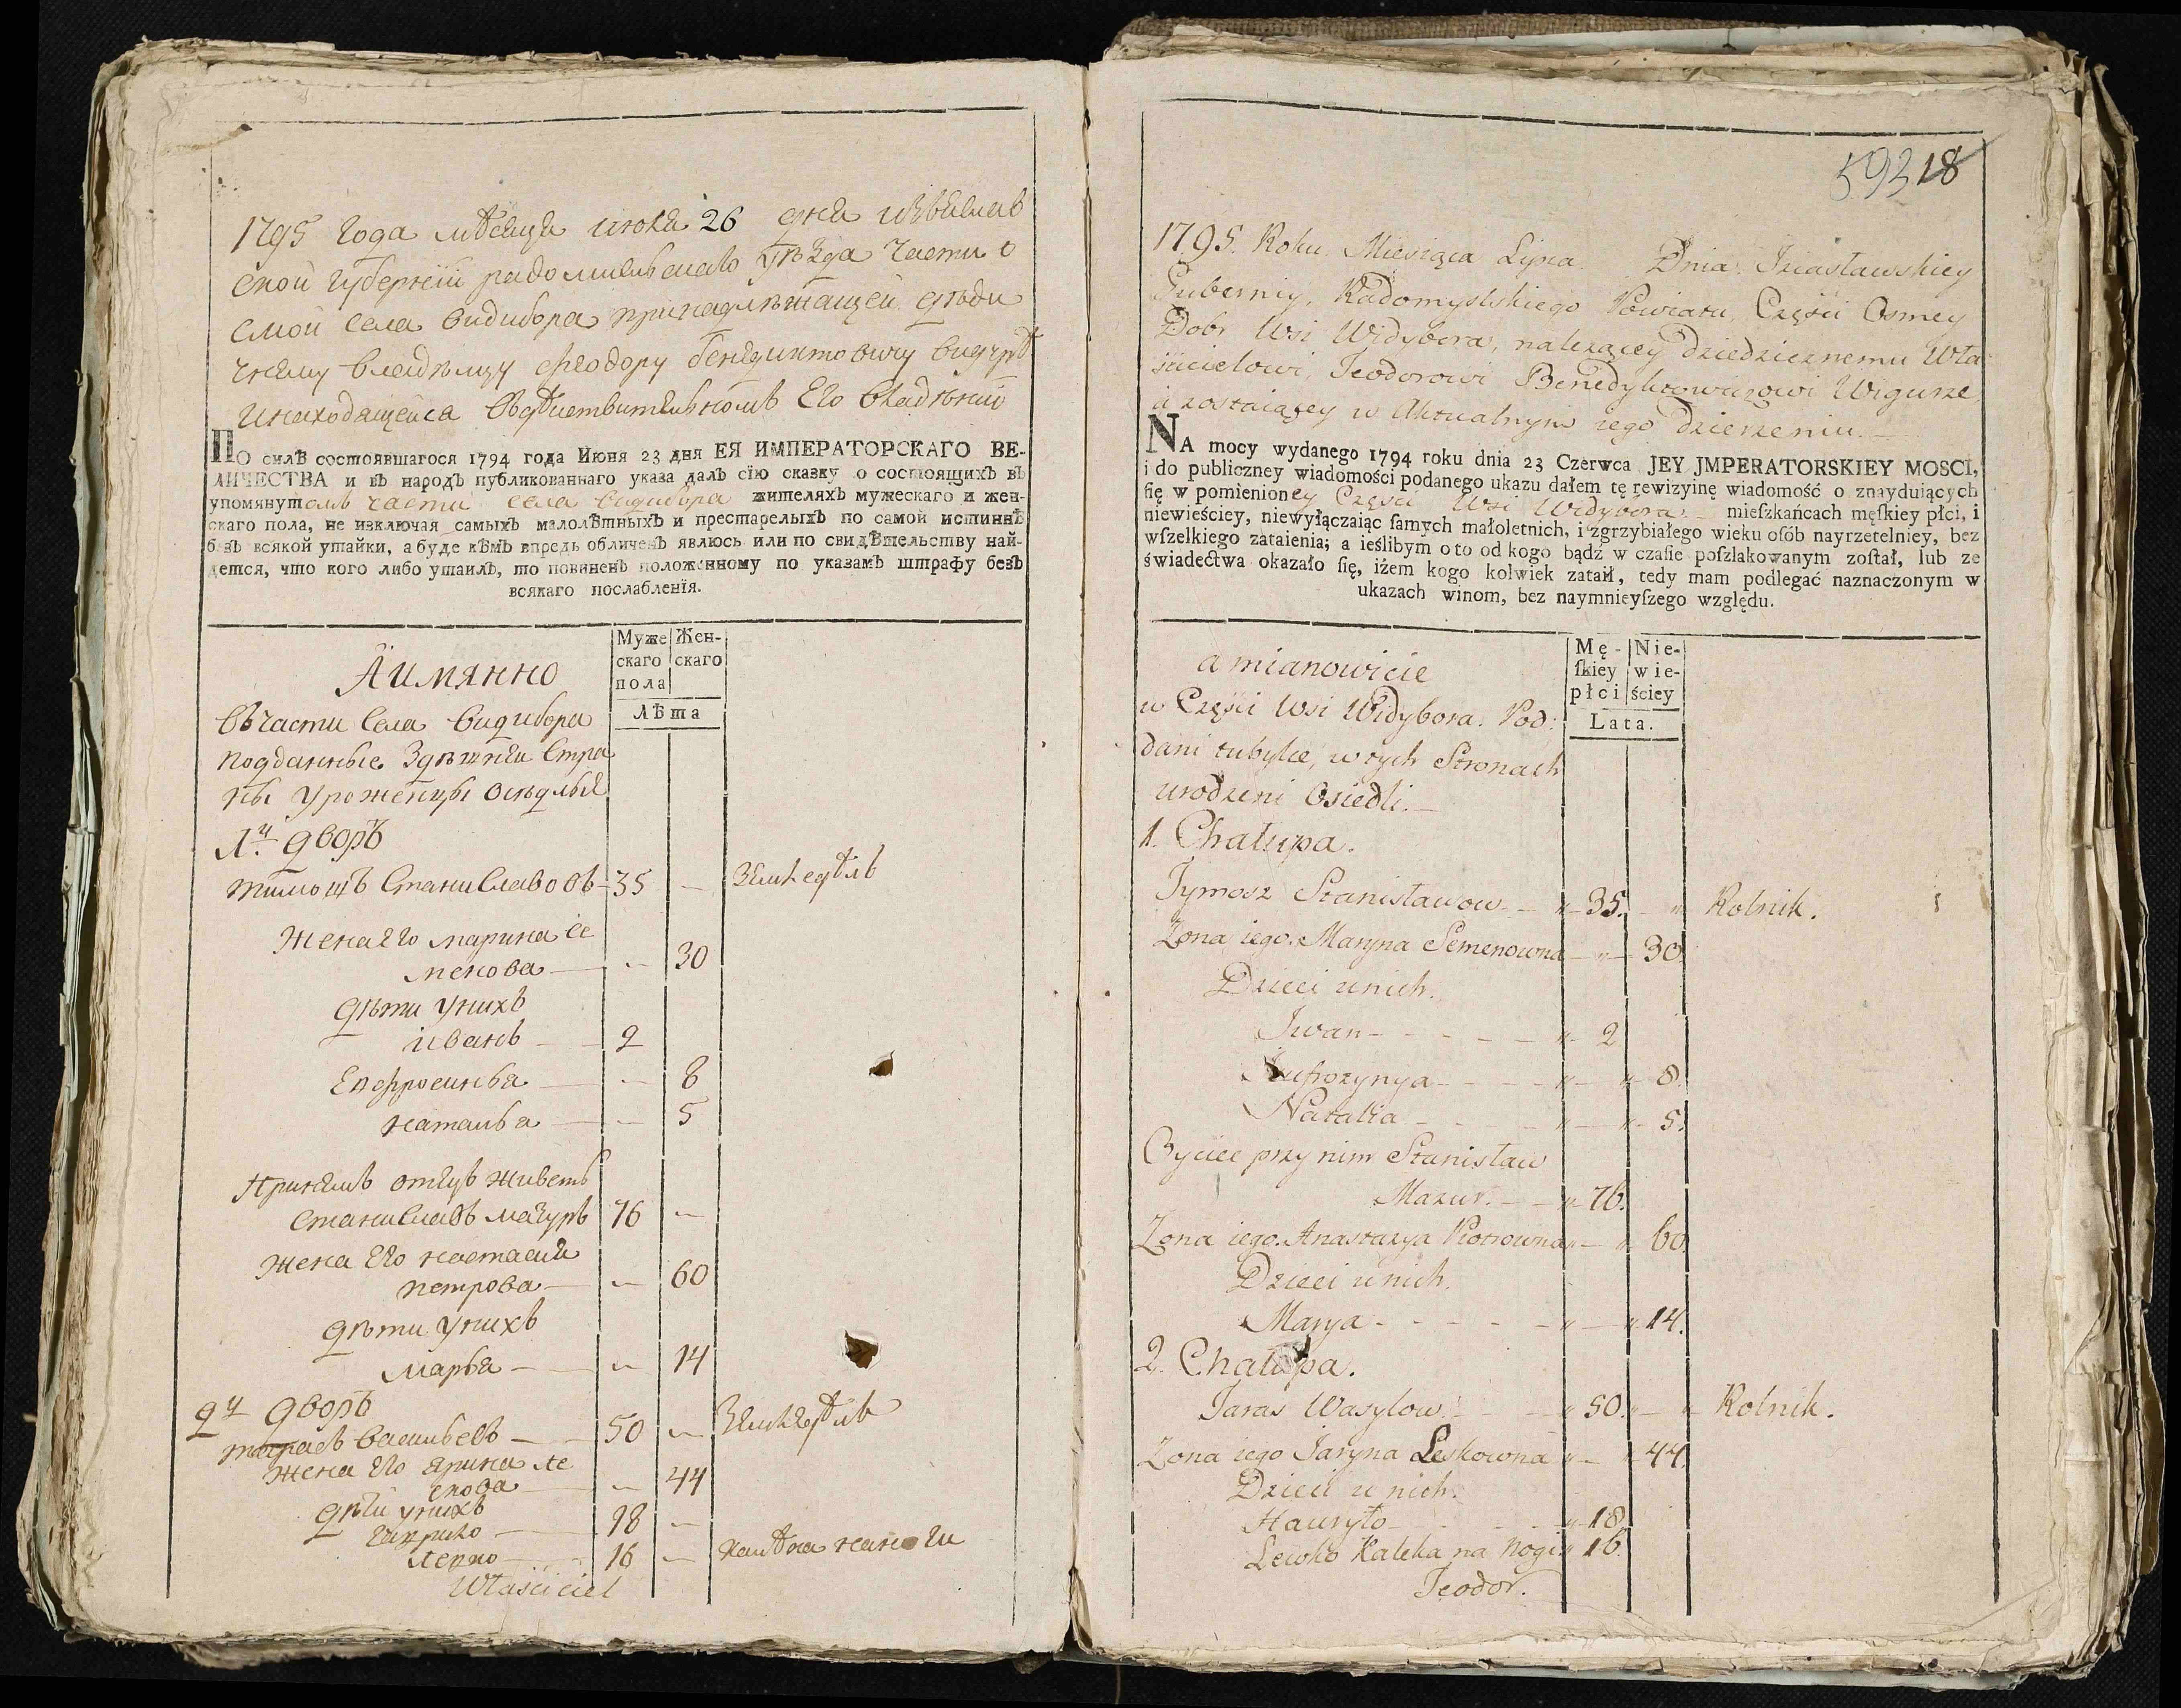 1795 года мѣсяца июля 26 дня изъяслав
ской губерній радомисльскаго уѣзда части о
смой села видибора принадлѣжащей дѣди
чному владѣлцу феодору бенедиктовичу
инаходящейся въдѣйствителномъ Его владѣніи
ПО силѣ состоявшагося 1794 года Июня 23 дня ЕЯ ИМПЕРАТОРСКАГО ВЕ-
ЛИЧЕСТВА и въ народъ публикованнаго указа далъ сїю сказку о состоящихъ въ
упомянутомъ части села видибора жителяхъ мужескаго и жен-
скаго пола, не изключая самыхъ малолѣтныхъ и престарелыхъ по самой истиннѣ
безъ всякой утайки, а буде кѣмъ впредь обличенъ явлюсь или по свидѣтельству най-
дется, что кого либо утаилъ, то повиненъ положенному по указамъ штрафу безъ
всякаго послабленїя.
Муже Жен-
скаго скаго
пола
Лѣта
Аимянно
Въчасти Села видибора
подданные здѣшнѣи Стра
ны уроженцы осѣдлыя
1й дворъ
тимошъ Станиславовъ 35 — землѣдѣлъ
жена Его марина се
менова — 30
дѣти унихъ
иванъ 2
Епфросинья — 8
наталья — 5
принемъ отецъ живетъ
станиславъ мазуръ 76 —
жена Его настасия
петрова — 60
дѣти унихъ
марья — 14
2й дворъ
тарасъ васильевъ — 50 — землѣдѣлъ
жена Его ярина ле
скова — 44
дѣти унихъ
гаврило — 18 —
левко — 16 — калѣка наноги
Właściciel
593 18
1795. Roku. Miesiąca Lipca. Dnia. Iziasławskiey
Gubernij, Radomyślskiego Powiatu, Części Osmey
Dobr Wsi Widybora, należącey dziedzicznemu Wła
ścicielowi, Teodorowi Benedyktowiczowi Wigurze,
a zostaiącey w Aktualnym iego Dzierżeniu.—
NA mocy wydanego 1794 roku dnia 23 Czerwca JEY JMPERATORSKIEY MOSCI,
i do publiczney wiadomości podanego ukazu dałem tę rewizyinę wiadomość o znayduiących
ſię w pomienioney Części Wsi Widybora.— mieſzkańcach męſkiey płci, i
niewieściey, niewyłączaiąc ſamych małoletnich, i zgrzybiałego wieku oſób nayrzetelniey, bez
wſzelkiego zataienia; a ieślibym o to od kogo bądź w czaſie poſzlakowanym zoſtał, lub ze
świadectwa okazało ſię, iżem kogo kolwiek zataił, tedy mam podlegać naznaczonym w
ukazach winom, bez naymnieyſzego względu.
Mę- Nie-
ſkiey wie-
płci ściey
Lata.
a mianowicie
w Części Wsi Widybora. Pod:
dani tubylce, w tych Stronach
urodzeni Osiedli.—
1. Chałupa.
Tymosz Stanisławow — „ 35. — „ Rolnik.
Żona iego. Maryna Semenowna — „ — 30.
Dzieci u nich.
Iwan - - - - - „ 2
Eufrozynya - - - - „ — „ 8.
Natalia - - - - - „ — „ 5.
Oyciec przy nim Stanisław
Mazur. — „ 76.
Żona iego. Anastazya Piotrowna „ — „ 60.
Dzieci u nich.
Marya - - - - - „ — „ 14.
2. Chałupa.
Taras Wasylow — „ 50. „ — „ Rolnik.
Żona iego Jaryna Leskowna „ — „ 44.
Dzieci u nich.
Hawryło — „ 18.
Lewko Kaleka na Nogi „ 16.
Teodor.